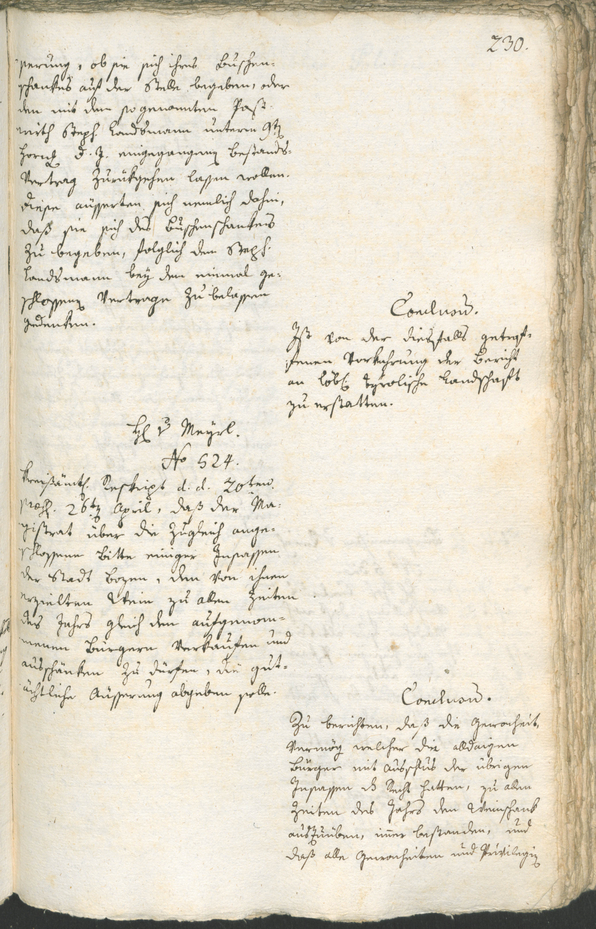 230.
serung, ob sie sich ihres Buschen-
schankes auf der Stelle begeben, oder
den mit dem sogenannten Past-
wirth Steph. Landsmann unterm 9t
Horng d. J. eingegangenen Bestands-
Vertrag zurückgehen lassen wollen.
Diese äusserten sich nemlich dahin,
daß sie sich des Buschenschankes
zu begeben, folglich den Steph.
Landsmann bey dem einmal ge-
schlossenen Vertrage zu belassen
gedenken.
Conclusum.
Ist von der diesfalls getrof-
fenen Vorkehrung der Bericht
an löbl. tyrolische Landschaft
zu erstatten.
H v Meyrl.
No 524.
Kreisämtl. Reskript d. d. 20ten
pross. 26t April, daß der Ma-
gistrat über die zugleich ange-
schlossene Bitte einiger Inseßen
der Stadt Bozen, den von ihnen
erzielten Wein zu allen Zeiten
des Jahrs gleich den aufgenom-
menen Bürgern verkaufen und
ausschänken zu dürfen, die gut-
ächtliche Äusserung abgeben solle.
Conclusum.
Zu berichten, daß die Gewonheit,
vermög welcher die alldaigen
Bürger mit Ausschluß der übrigen
Insassen das Recht hatten, zu allen
Zeiten des Jahrs den Weinschank
auszuüben, immer bestanden, und
daß alle Gewonheiten und Privilegien